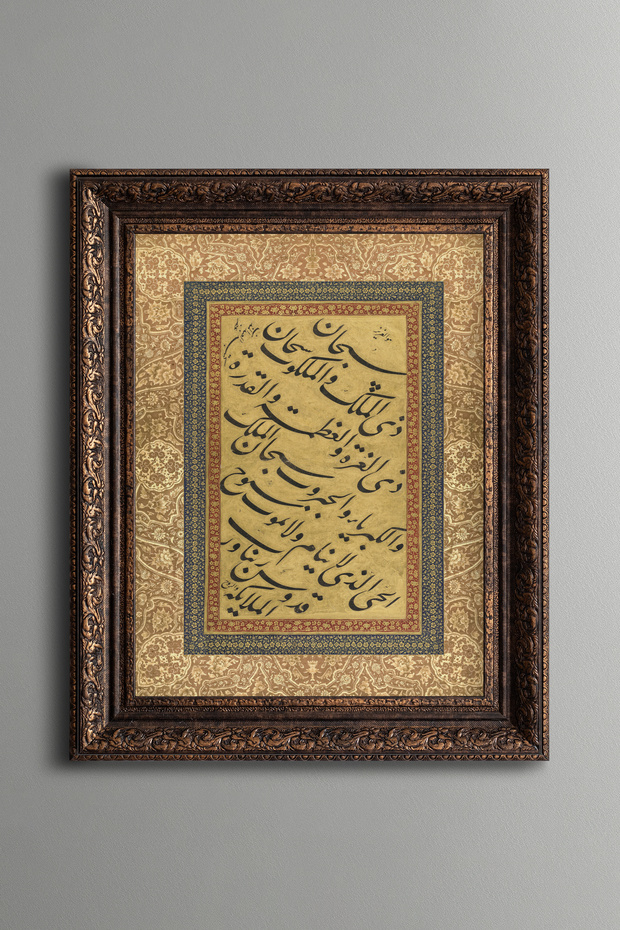 سبحان
ذی الملک والملکوت سبحان
ذی العزة والعظمة والقدرة
والکبریاء والجبروت سبحان الملک
الحی الذی لا ینام ولا یموت سبوح
قدوس ربنا ورب
الملایکة